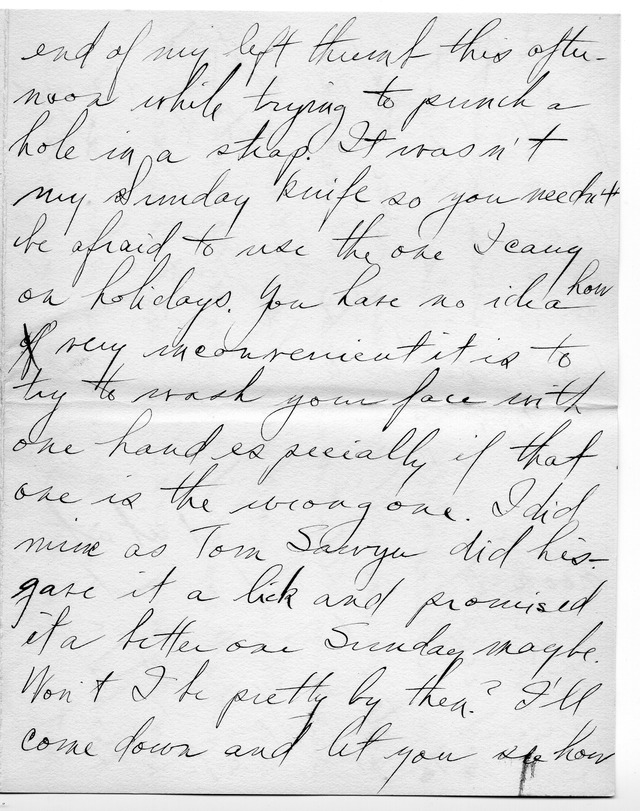 end of my left thumb this after-
noon while trying to punch a
hole in a strap. It wasn't
my Sunday knife so you needn't
be afraid to use the one I carry
on holidays. You have no idea how
very inconvenient it is to
try to wash your face with
one hand especially if that
one is the wrong one. I did
mine as Tom Sawyer did his-
gave it a lick and promised
it a better one Sunday maybe.
Won't I be pretty by then? I'll
come down and let you see how